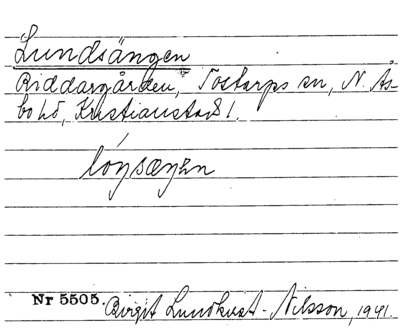 Lundsängen
Riddargården, Tostarps sn, N. Ås-
bo hd, Kristianstads l.
Nr 5505. Birgit Lundkvist-Nilsson, 1941.